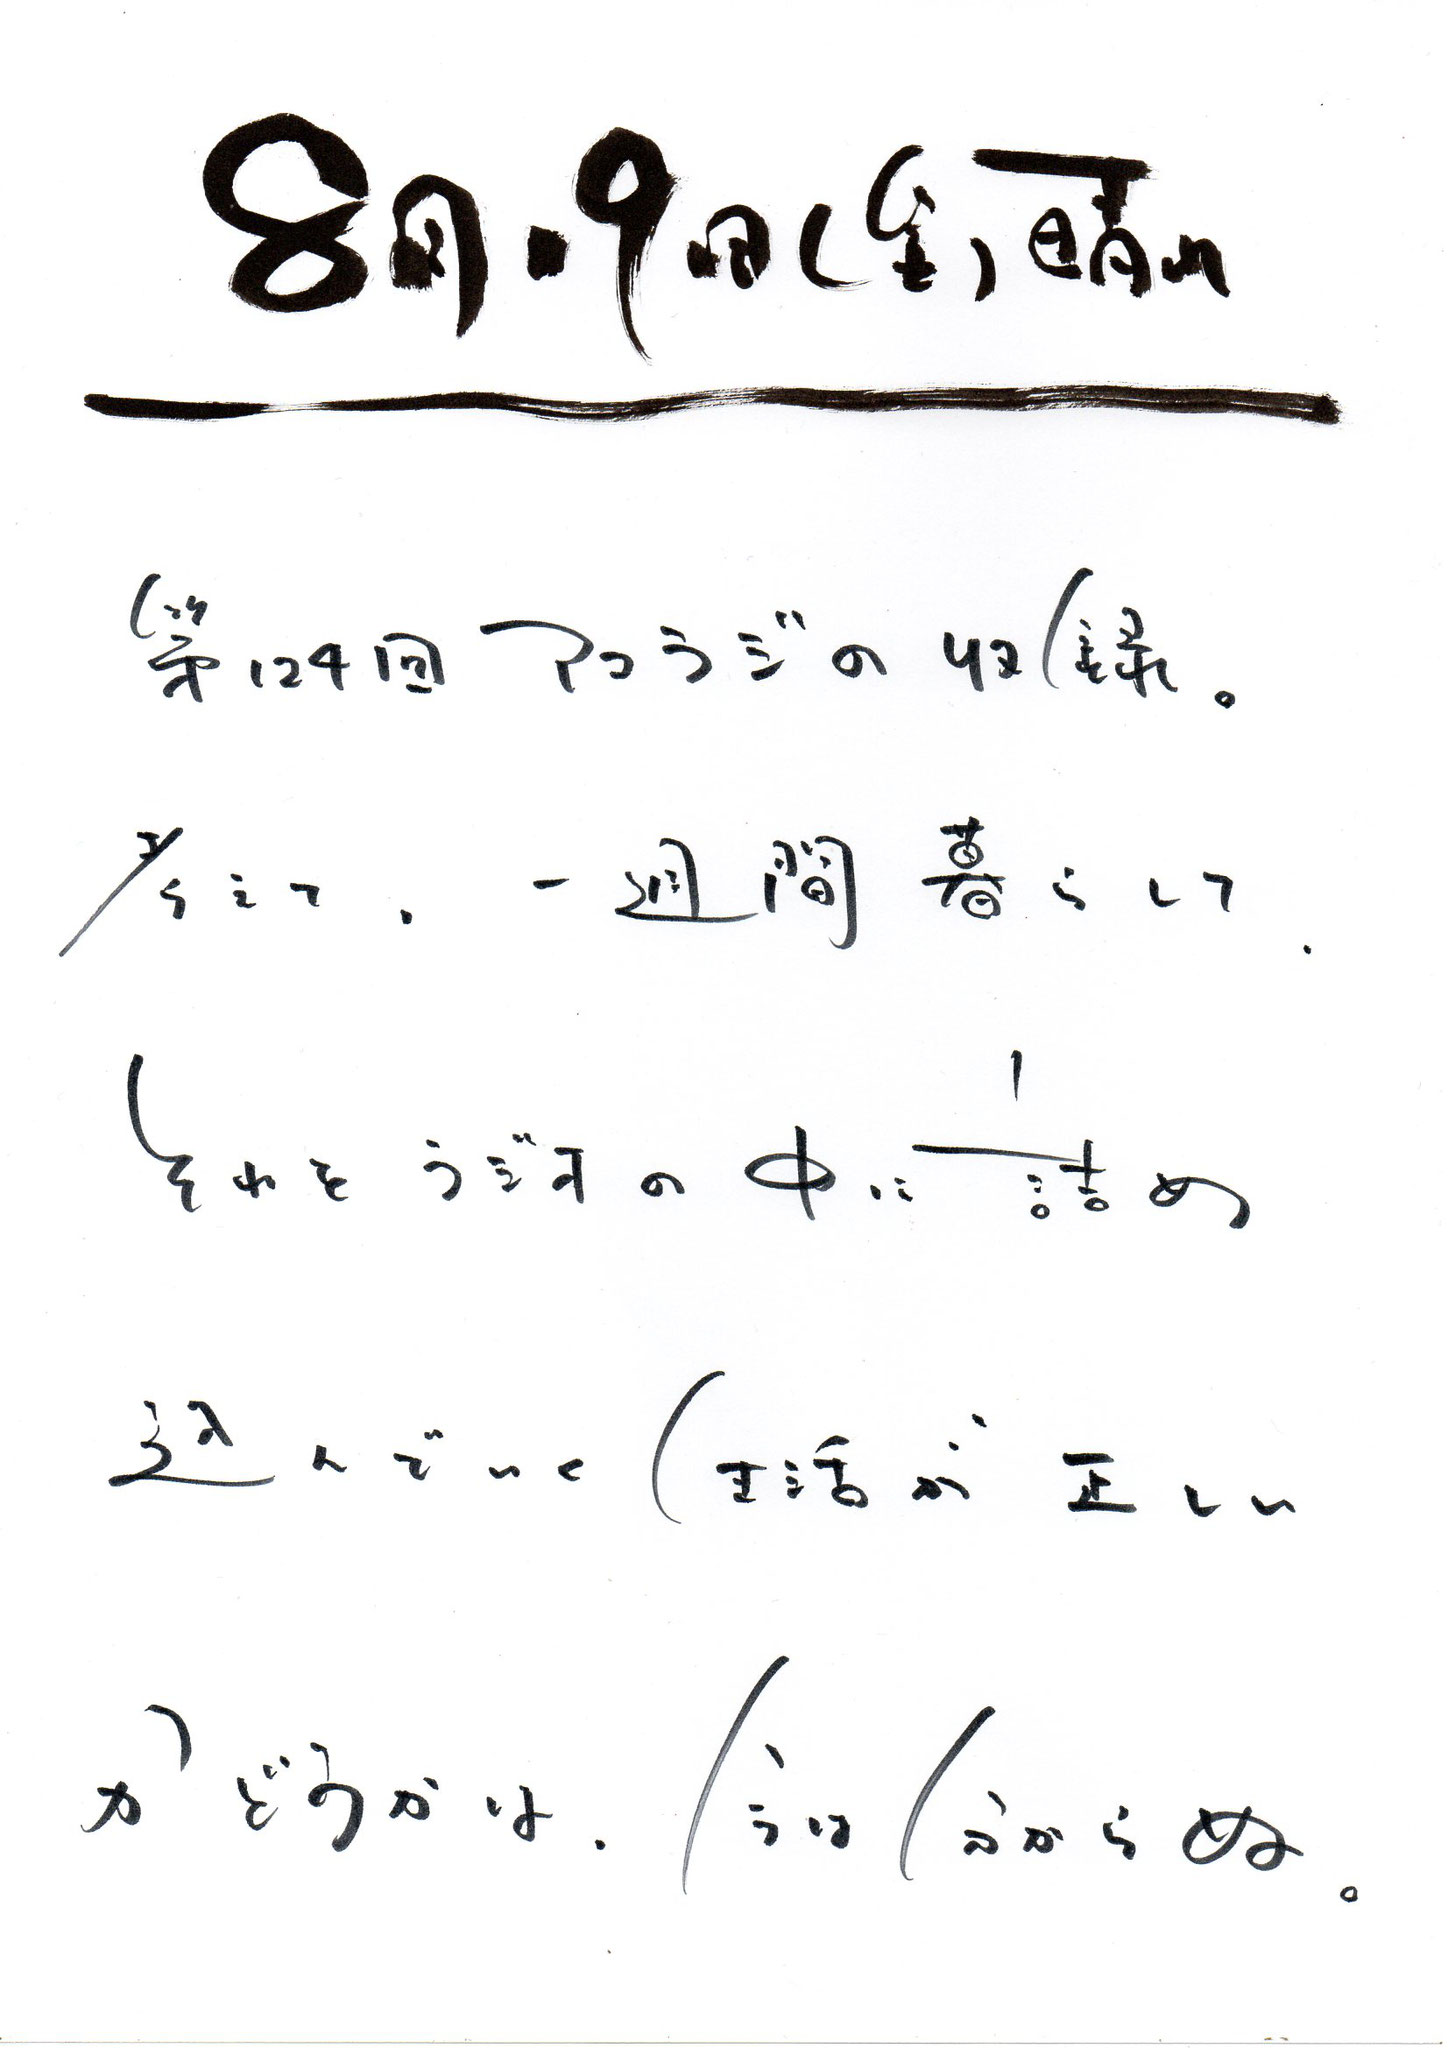 8月・9日(金)晴れ
第124回アコラジの収録。
考えて、一週間暮らして、
それをラジオの中に詰め
込んでいく生活が正しい
かどうかは、今は分からぬ。